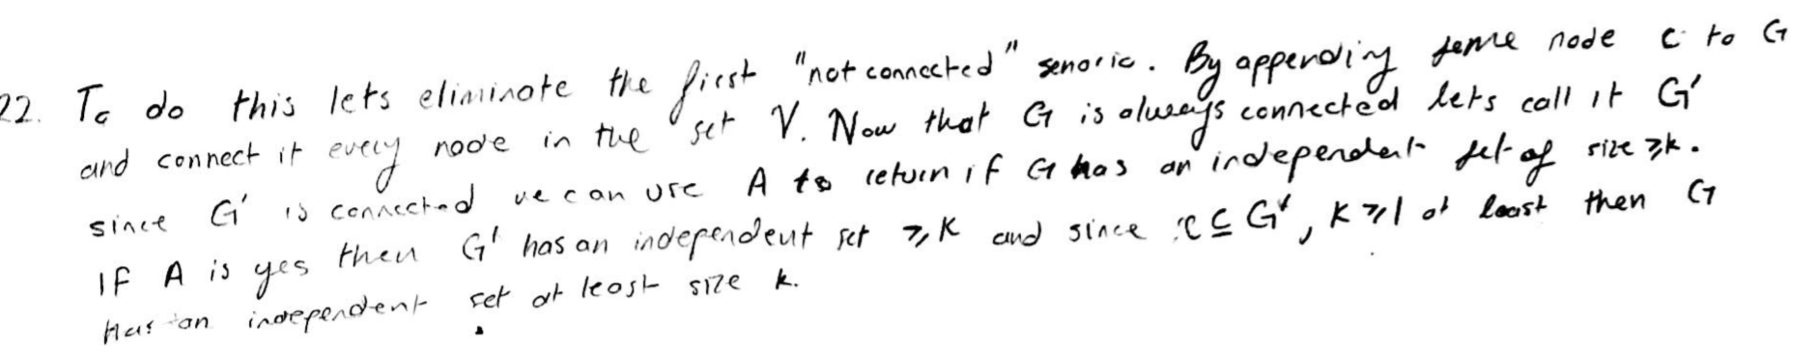 22. To do this lets eliminate the first "not connected" senoric. By appending some node c to G
and connect it every node in the set V. Now that G is always connected lets call it G'
since G' is connected we can use A to return if G has an independent set of size ≥k.
IF A is yes then G' has an independent set ≥K and since c ⊆ G', K ≥ 1 at least then G
Has an independent set at least size k.